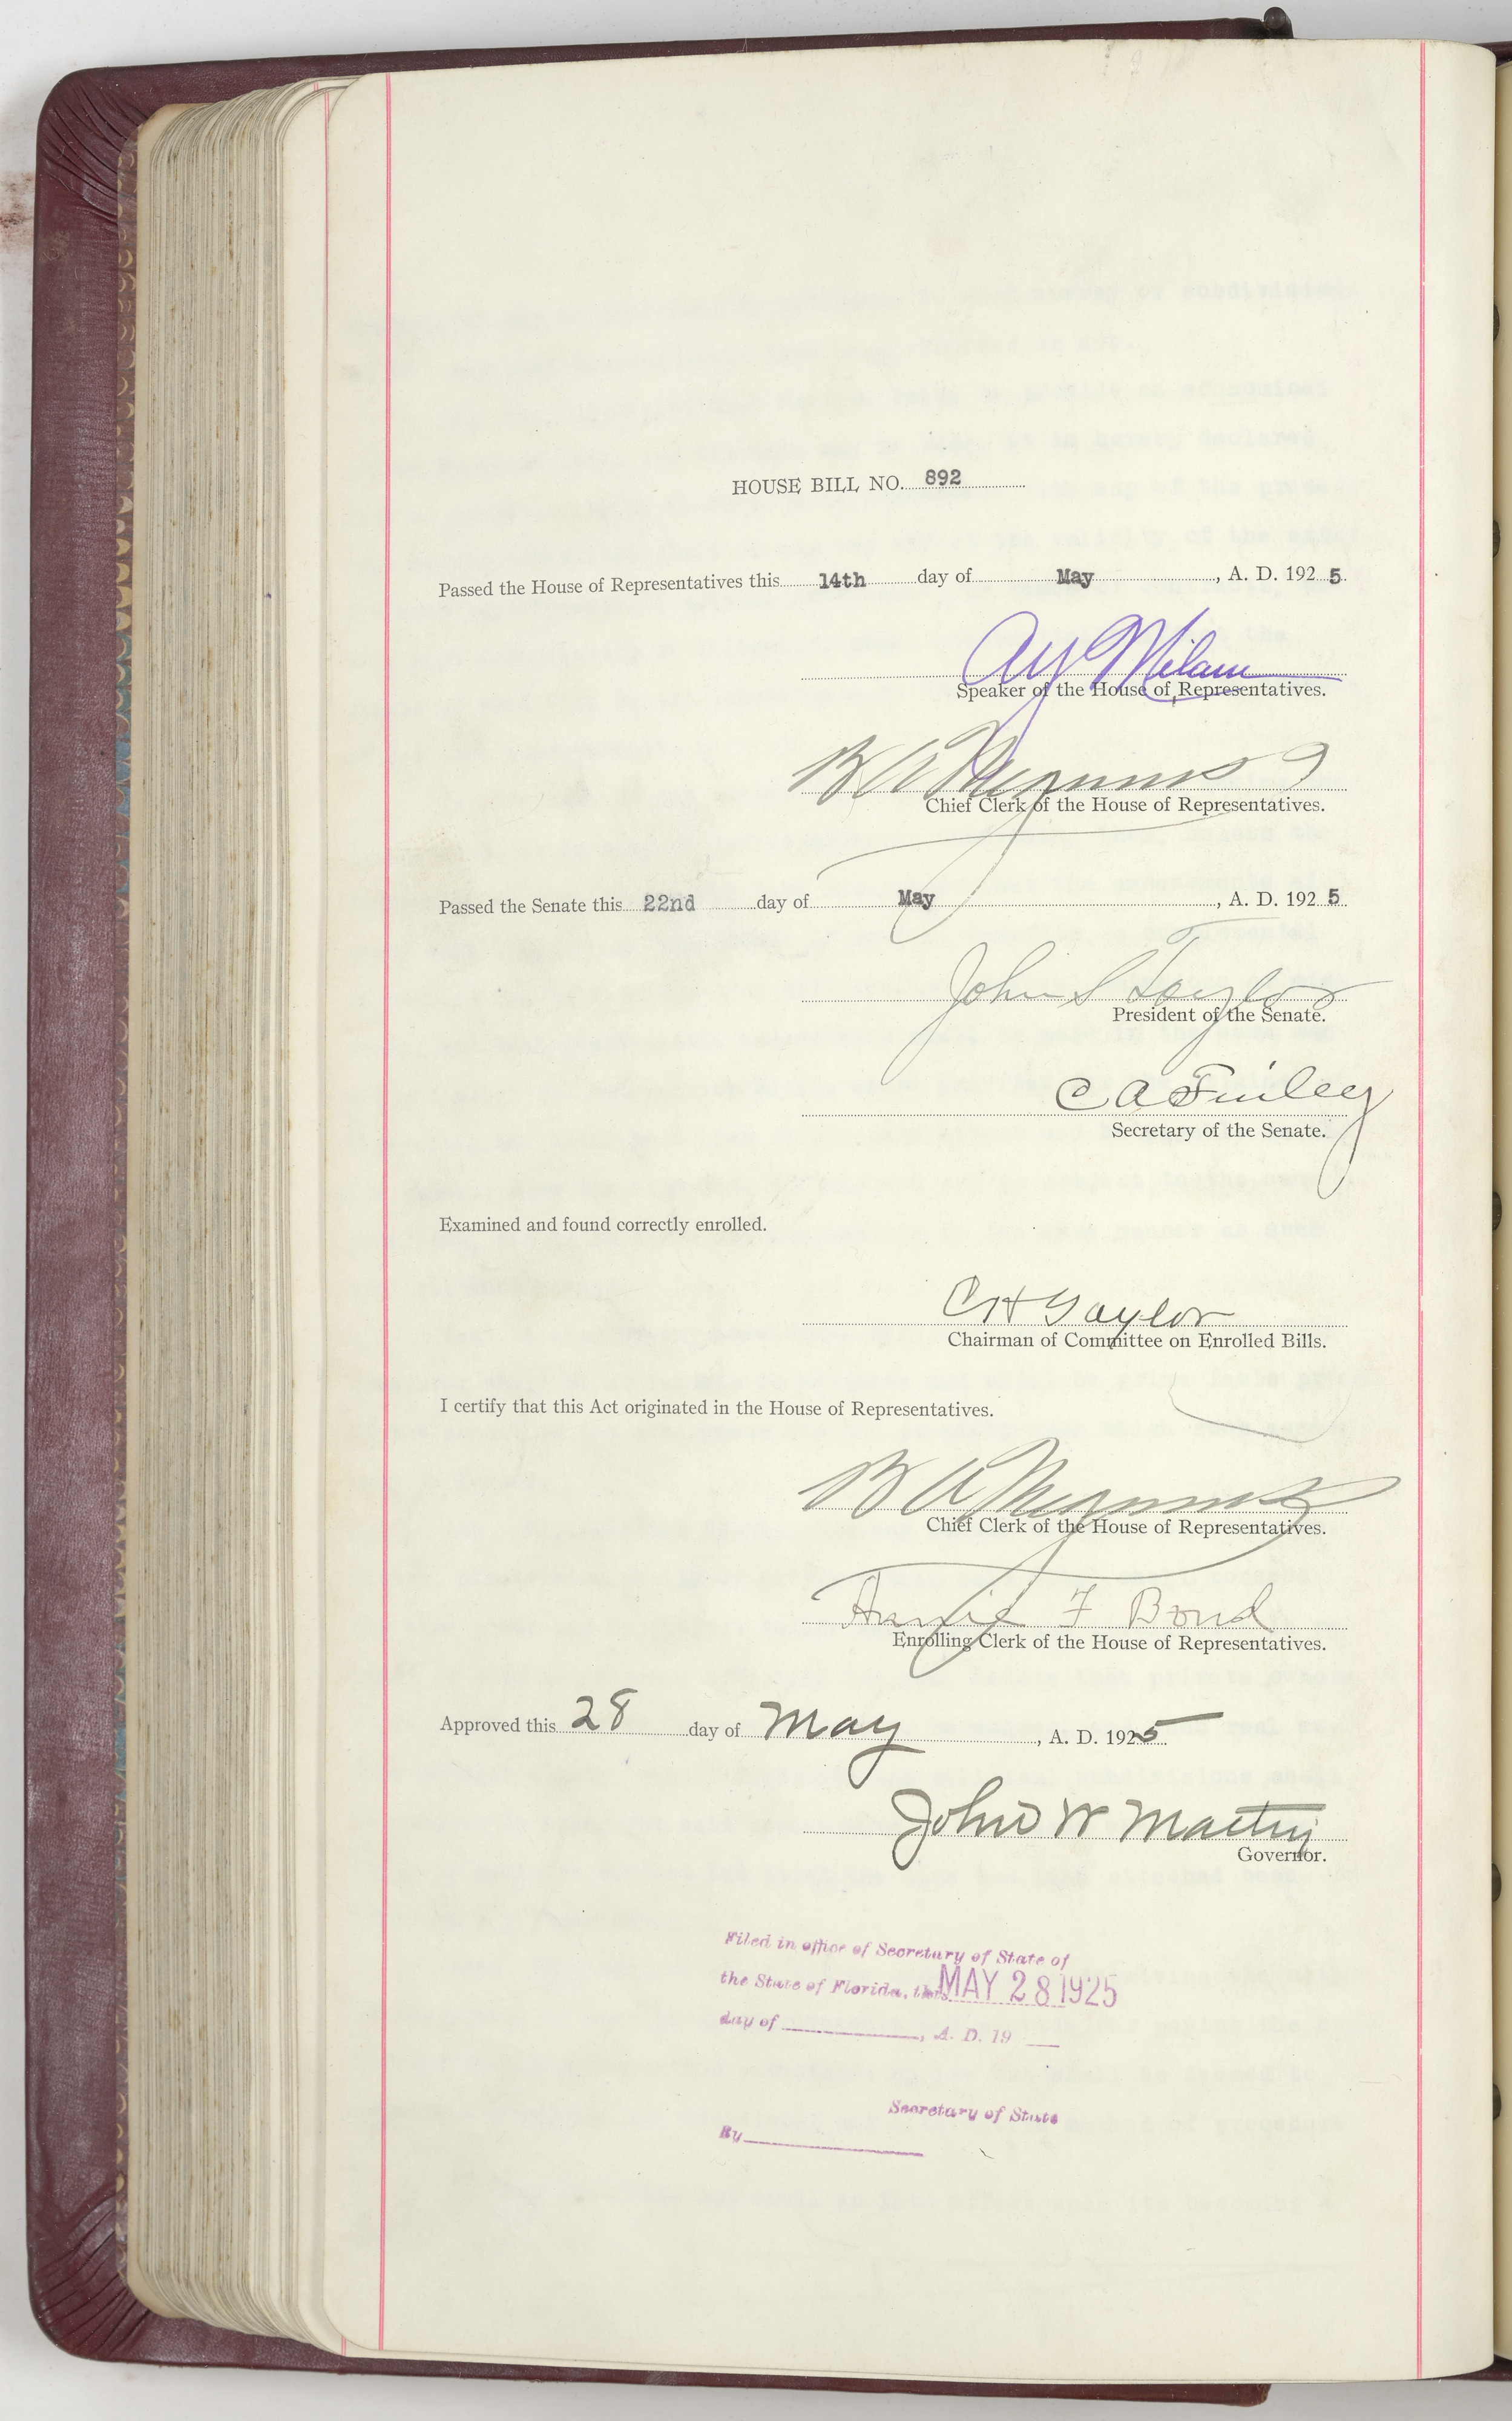 HOUSE BILL NO. 892
Passed the House of Representatives this 14th day of May, A. D. 1925
A Y Milam
Speaker of the House of Representatives.
B A Meginniss
Chief Clerk of the House of Representatives.
Passed the Senate this 22nd day of May, A. D. 1925
John S Taylor
President of the Senate.
C A Finley
Secretary of the Senate.
Examined and found correctly enrolled.
C H Taylor
Chairman of Committee on Enrolled Bills.
I certify that this Act originated in the House of Representatives.
B A Meginniss
Chief Clerk of the House of Representatives.
Annie F Bond
Enrolling Clerk of the House of Representatives.
Approved this 28 day of May, A. D. 1925
John W Martin
Governor.
Filed in office of Secretary of State of
the State of Florida, this MAY 28 1925
day of , A. D. 19
Secretary of State
By